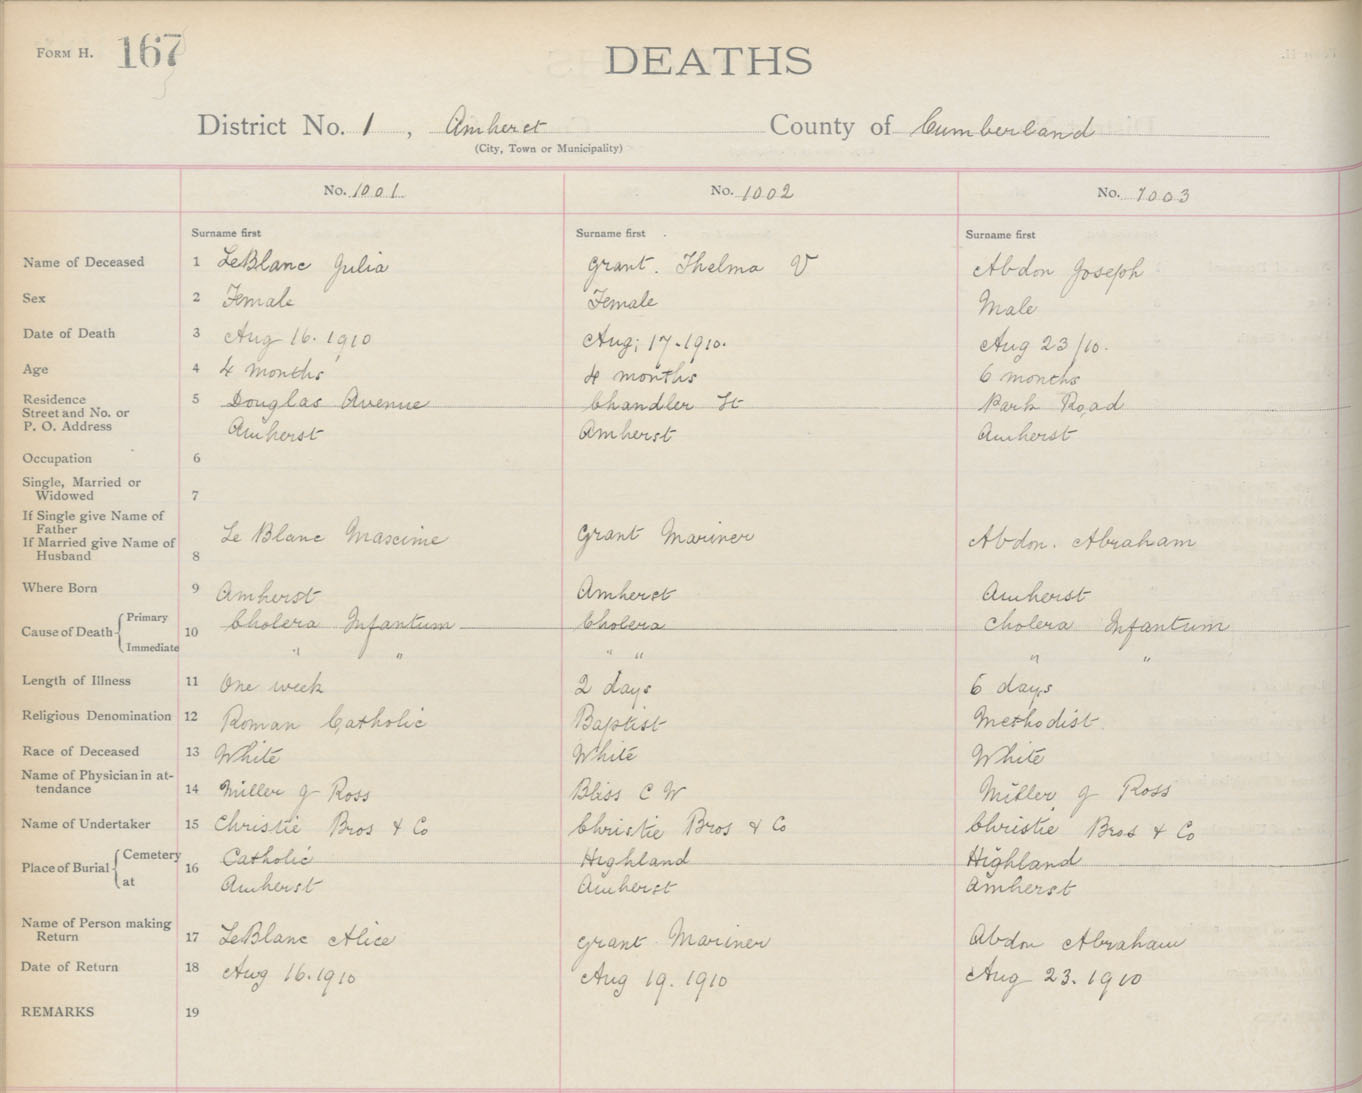 FORM H. 167
DEATHS
District No. 1, Amherst County of Cumberland
(City, Town or Municipality)
No. 1001 No. 1002 No. 1003
Surname first Surname first Surname first
Name of Deceased 1 LeBlanc Julia Grant. Thelma V Abdon Joseph
Sex 2 Female Female Male
Date of Death 3 Aug 16. 1910 Aug; 17-1910. Aug 23/10.
Age 4 4 months 4 months 6 months
Residence 5 Douglas Avenue Chandler St Park Road
Street and No. or
P. O. Address Amherst Amherst Amherst
Occupation 6
Single, Married or
Widowed 7
If Single give Name of
Father
If Married give Name of Le Blanc Maxcime Grant Mariner Abdon. Abraham
Husband 8
Where Born 9 Amherst Amherst Amherst
Cause of Death Primary 10 Cholera Infantum Cholera Cholera Infantum
Immediate " " " " " "
Length of Illness 11 One week 2 days 6 days
Religious Denomination 12 Roman Catholic Baptist Methodist.
Race of Deceased 13 White White White
Name of Physician in at-
tendance 14 Miller g Ross Bliss C W Miller g Ross
Name of Undertaker 15 Christie Bros & Co Christie Bros & Co Christie Bros & Co
Place of Burial Cemetery 16 Catholic Highland Highland
at Amherst Amherst Amherst
Name of Person making
Return 17 LeBlanc Alice Grant Mariner Abdon Abraham
Date of Return 18 Aug 16. 1910 Aug 19. 1910 Aug 23. 1910
REMARKS 19